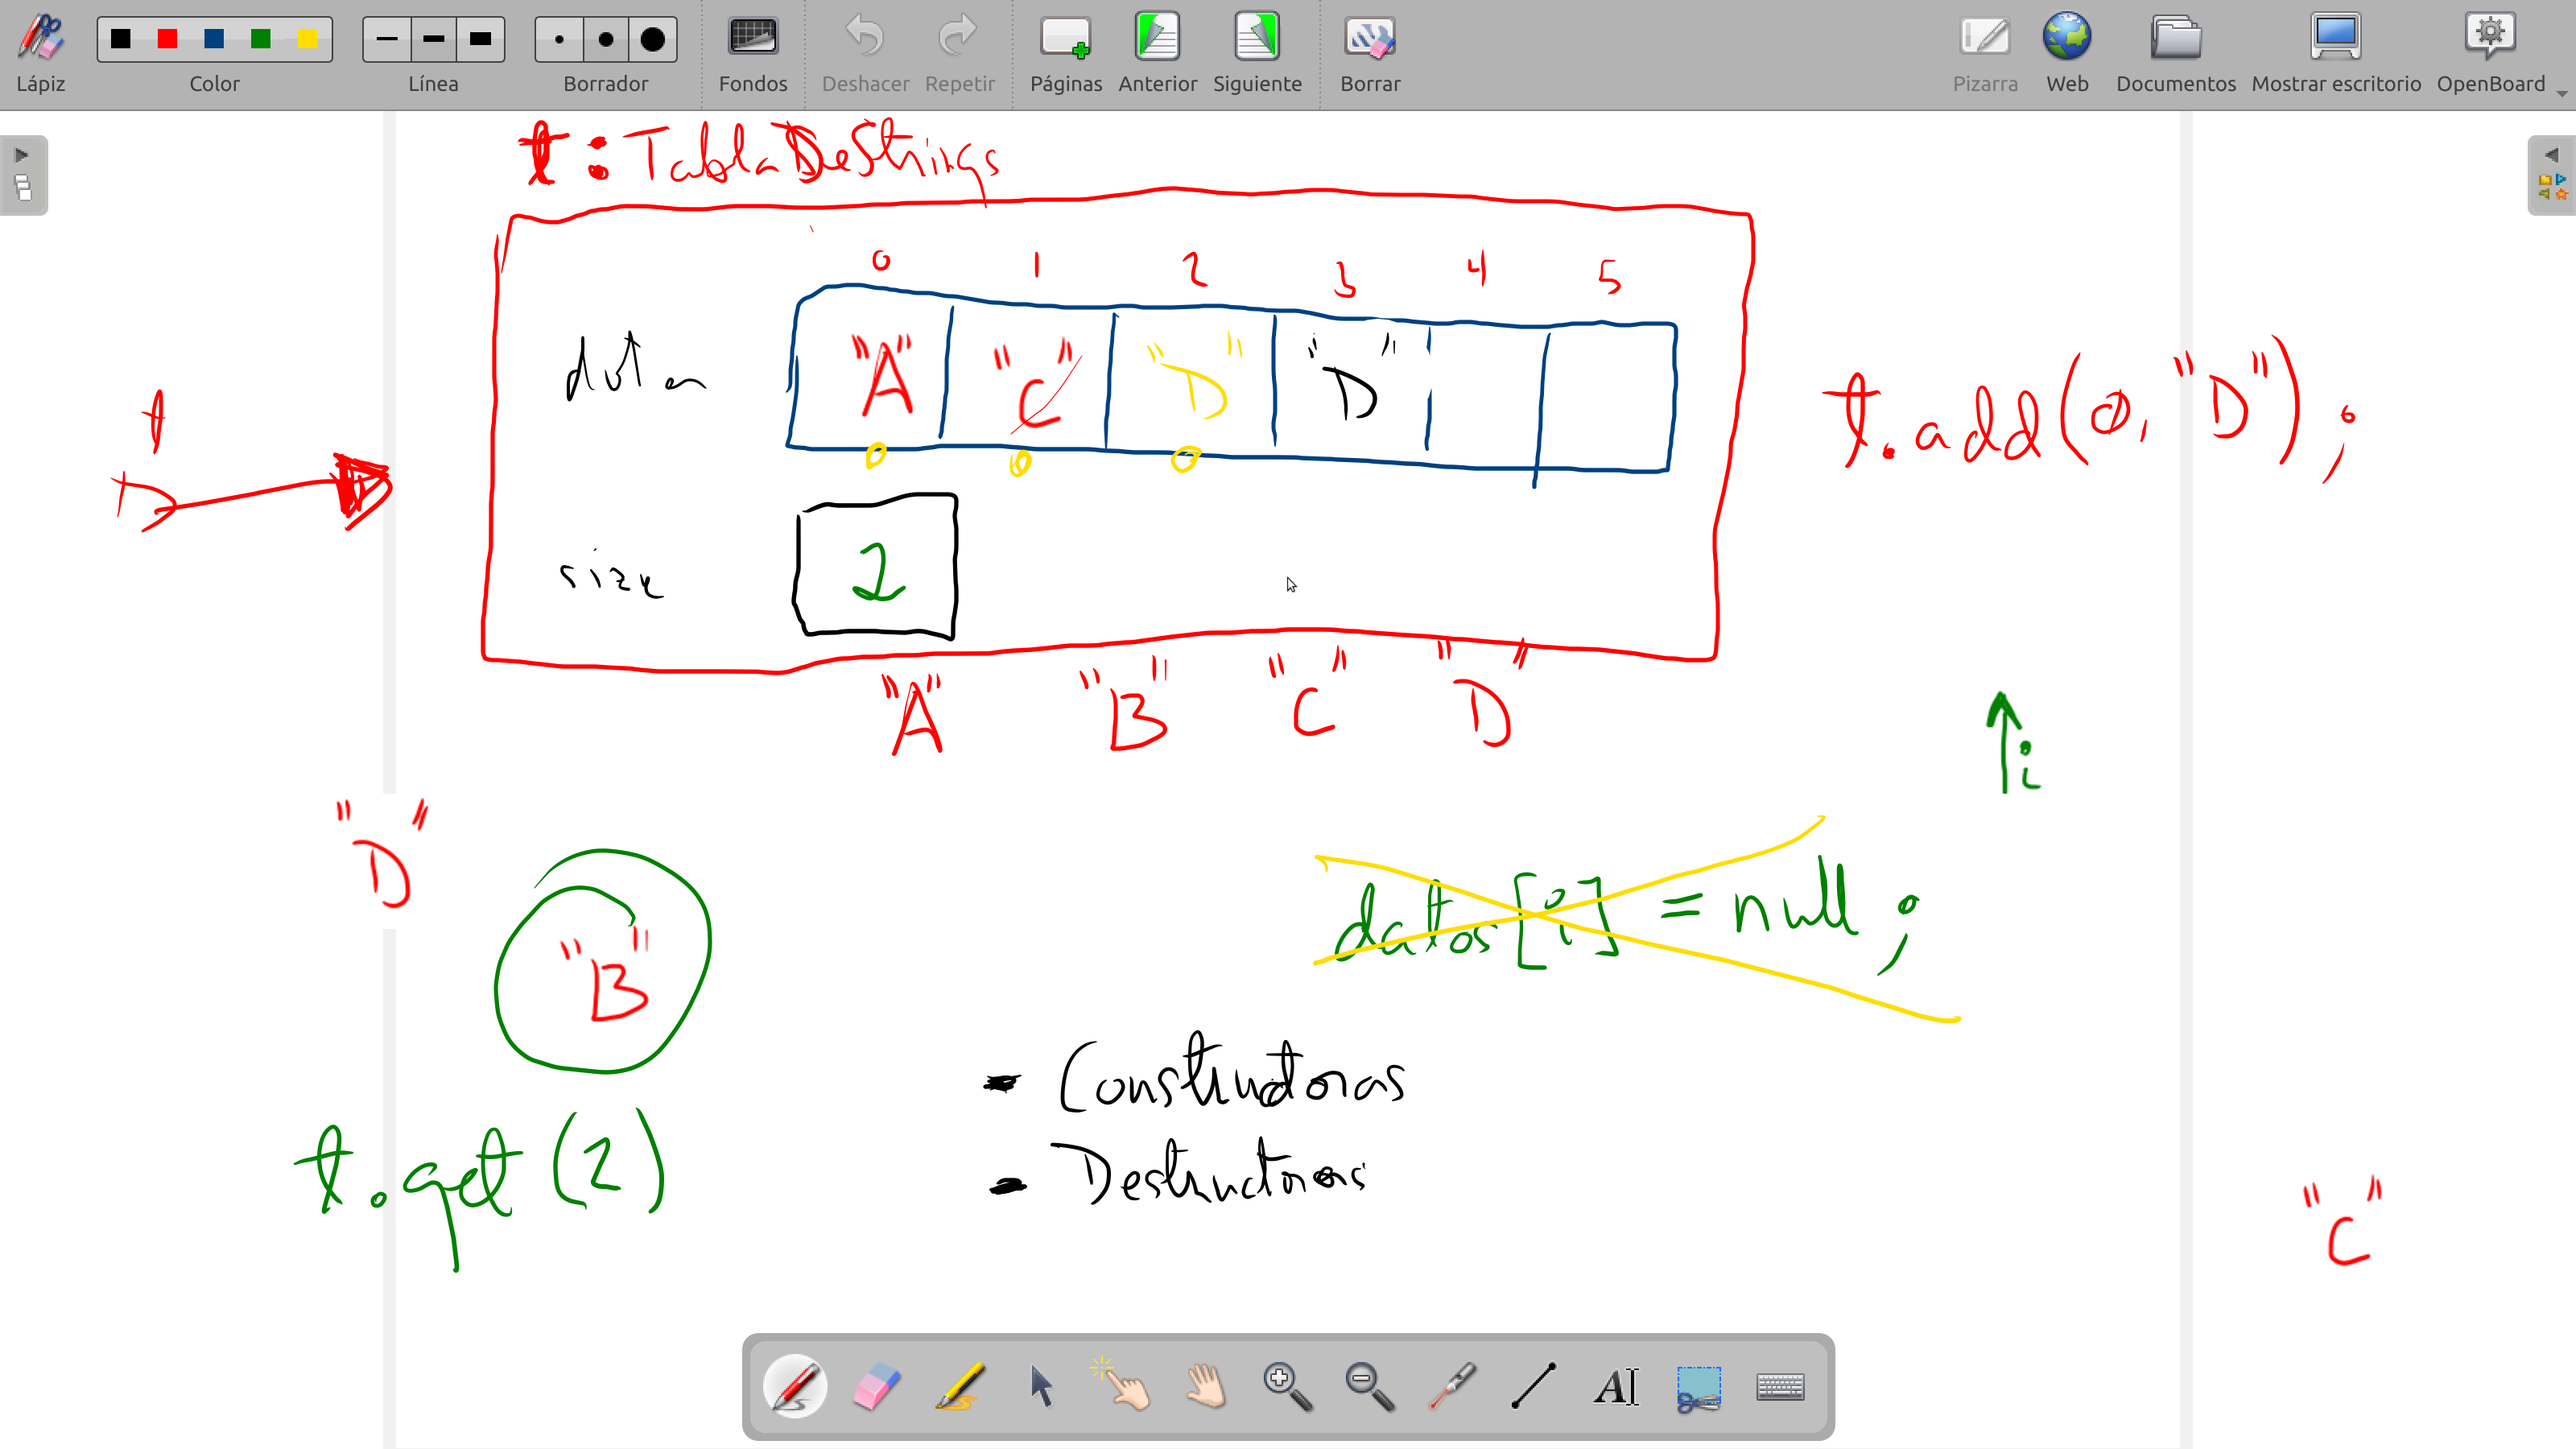 Lápiz Color Línea Borrador Fondos Deshacer Repetir Páginas Anterior Siguiente Borrar Pizarra Web Documentos Mostrar escritorio OpenBoard
t: TablaDeStrings
0 1 2 3 4 5
datos "A" "C" "D" "D"
t
t.add(0, "D");
size 2
"A" "B" "C" "D"
i
"D"
datos[i] = null;
"B"
- Constructoras
t.get(2)
- Destructoras
"C"
AI